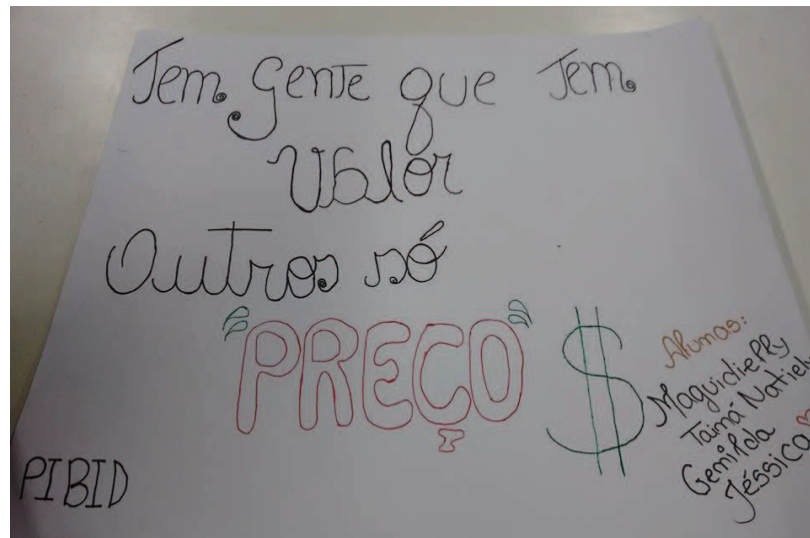 Tem gente que tem
Valor
Outros só
"PREÇO" $
PIBID
Alunas:
Maguidielly
Tainá Natiely
Genilda
Jéssica